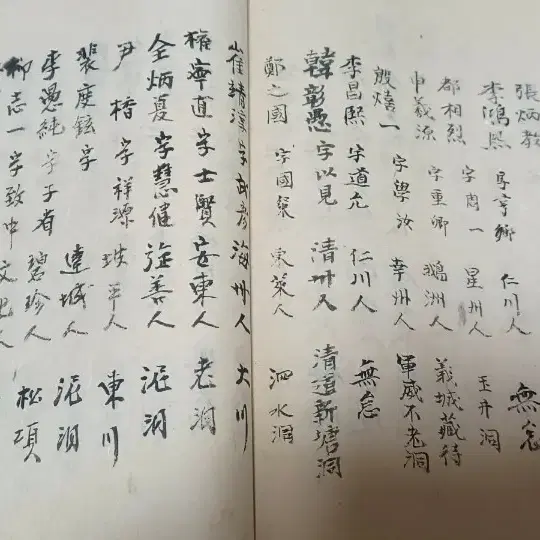 張炳教
李鴻熙 字亨卿 仁川人 無怠
都相烈 字周一 星州人 玉井洞
申羲源 字重卿 鵝洲人 義城藏待
殷熺一 字學汝 幸州人 軍威不老洞
李昌熙 字道允 仁川人 無怠
韓彰愚 字以見 清州人 清道新塘洞
鄭之國 字國 東萊人 泗水洞
崔靖淳 字武彦 海州人 大川
權寧直 字士賢 安東人 老洞
全炳夏 字慧催 旌善人 泥洞
尹楷 字祥源 坡平人 東川
裴座鉉 字 達城人 泥洞
李愚純 字子有 碧珍人 松項
柳志一 字致中 文化人